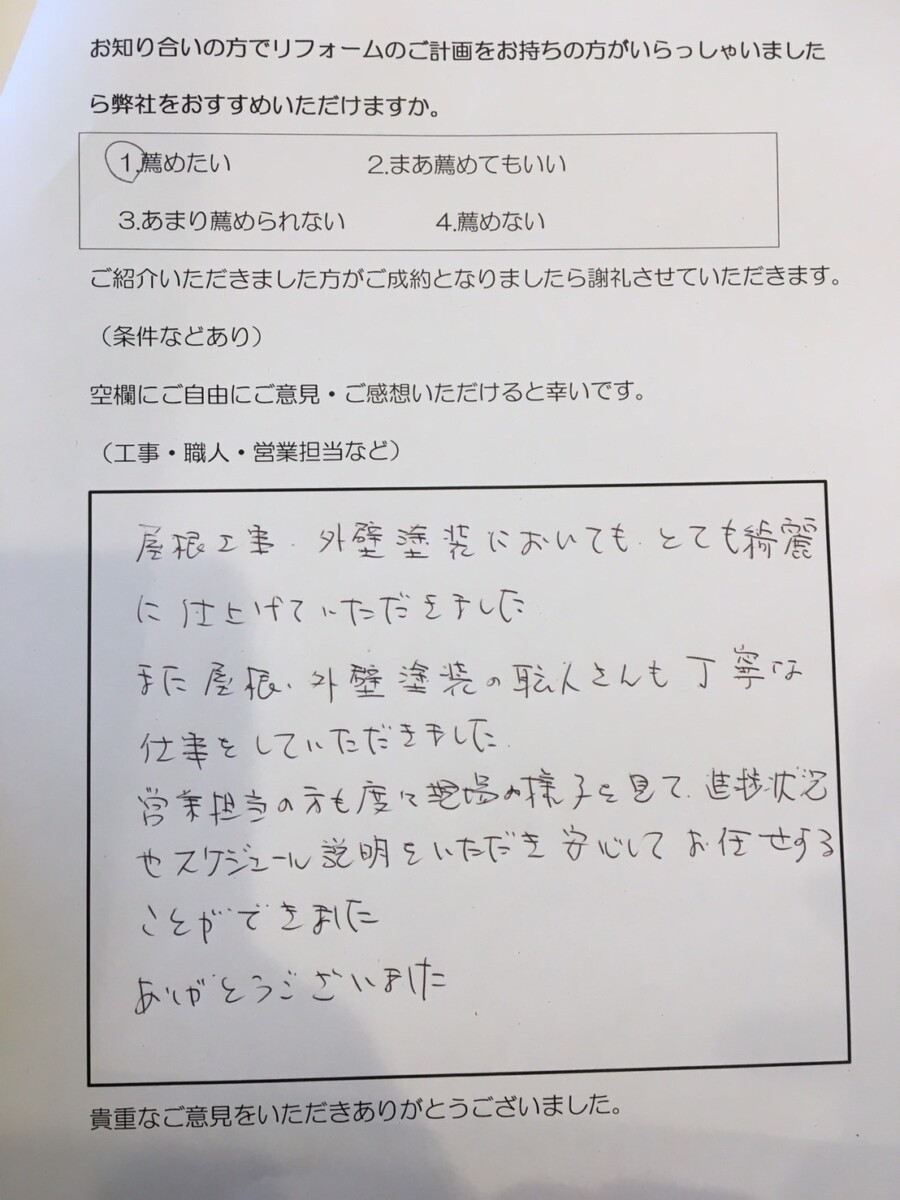 お知り合いの方でリフォームのご計画をお持ちの方がいらっしゃいました
ら弊社をおすすめいただけますか。
1.薦めたい 2.まあ薦めてもいい
3.あまり薦められない 4.薦めない
ご紹介いただきました方がご成約となりましたら謝礼させていただきます。
（条件などあり）
空欄にご自由にご意見・ご感想いただけると幸いです。
（工事・職人・営業担当など）
屋根工事、外壁塗装においても、とても綺麗
に仕上げていただきました
また屋根、外壁塗装の職人さんも丁寧な
仕事をしていただきました。
営業担当の方も度々現場の様子を見て、進捗状況
やスケジュール説明をいただき安心してお任せする
ことができました
ありがとうございました
貴重なご意見をいただきありがとうございました。